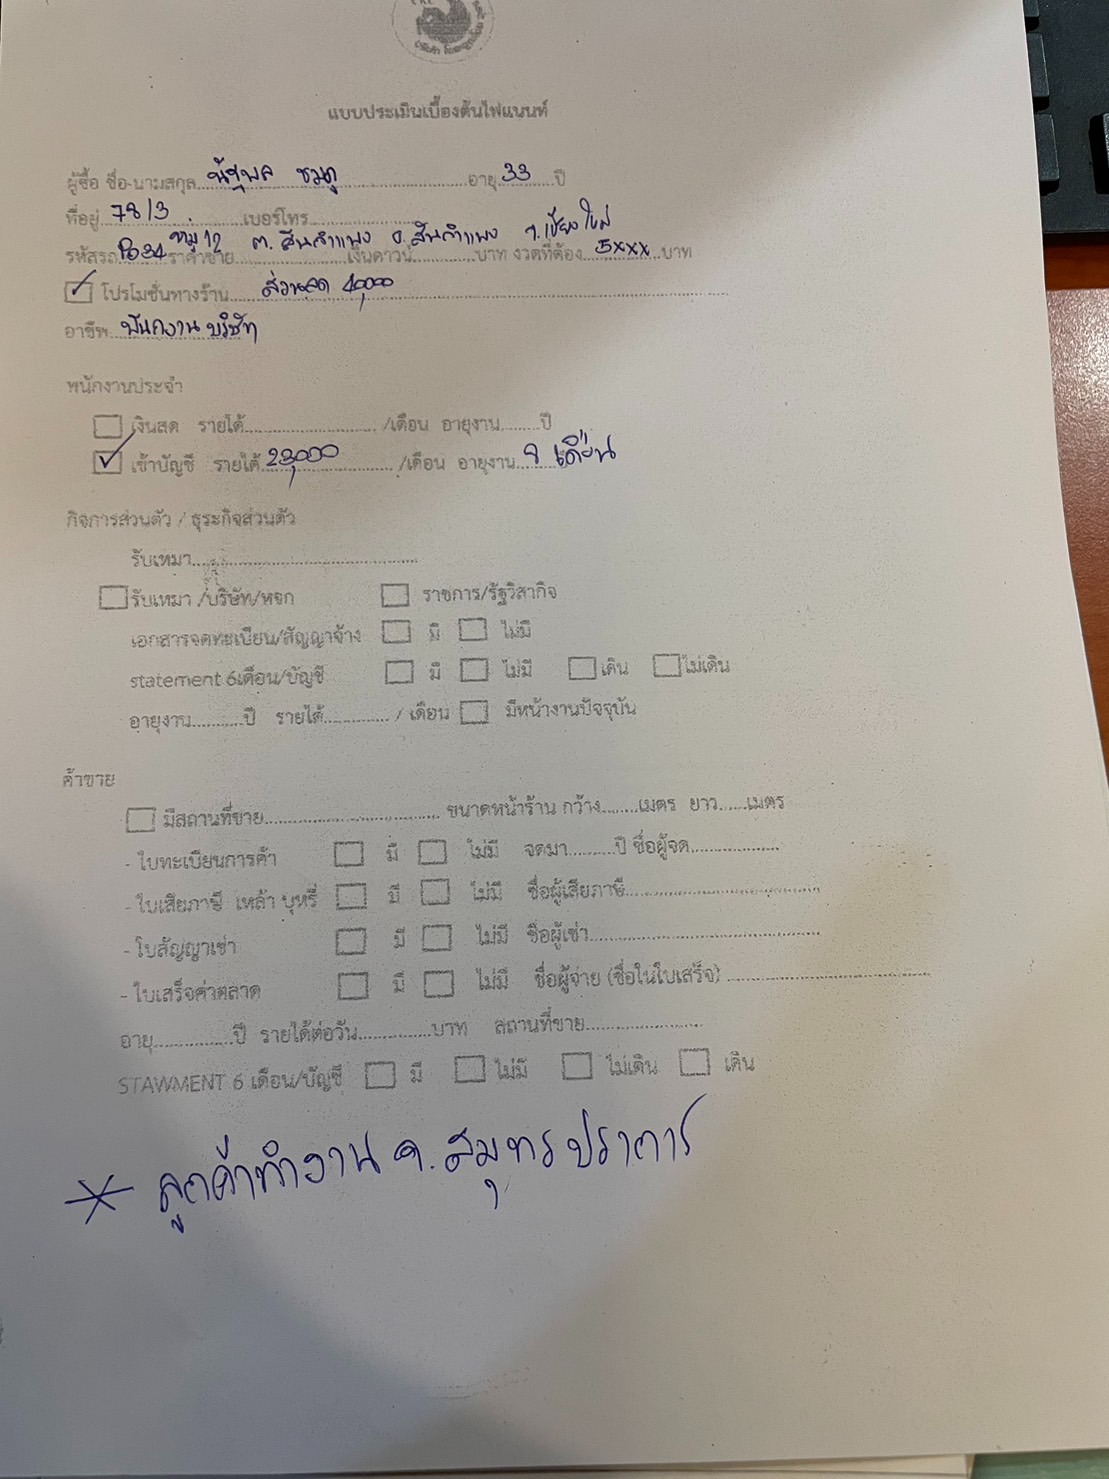 แบบประเมินเบื้องต้นไฟแนนท์
ผู้ซื้อ ชื่อ-นามสกุล นัฐพล ชมภู อายุ 33 ปี
ที่อยู่ 78/3 เบอร์โทร
หมู่ 12 ต. สันกำแพง อ. สันกำแพง จ. เชียงใหม่
รหัสรถ P634 ราคาขาย เงินดาวน์ บาท งวดที่ต้อง 5xxx บาท
โปรโมชั่นทางร้าน ส่วนลด 40,000
อาชีพ พนักงานบริษัท
พนักงานประจำ
เงินสด รายได้ /เดือน อายุงาน ปี
เข้าบัญชี รายได้ 23,000 /เดือน อายุงาน เดือน
กิจการส่วนตัว / ธุระกิจส่วนตัว
รับเหมา
รับเหมา /บริษัท/หจก ราชการ/รัฐวิสากิจ
เอกสารจดทะเบียน/สัญญาจ้าง มี ไม่มี
statement 6เดือน/บัญชี มี ไม่มี เดิน ไม่เดิน
อายุงาน ปี รายได้ / เดือน มีหน้างานปัจจุบัน
ค้าขาย
มีสถานที่ขาย ขนาดหน้าร้าน กว้าง เมตร ยาว เมตร
- ใบทะเบียนการค้า มี ไม่มี จดมา ปี ชื่อผู้จด
- ใบเสียภาษี เหล้า บุหรี่ มี ไม่มี ชื่อผู้เสียภาษี
- ใบสัญญาเช่า มี ไม่มี ชื่อผู้เช่า
- ใบเสร็จค่าตลาด มี ไม่มี ชื่อผู้จ่าย (ชื่อในใบเสร็จ)
อายุ ปี รายได้ต่อวัน บาท สถานที่ขาย
STAWMENT 6 เดือน/บัญชี มี ไม่มี ไม่เดิน เดิน
* ลูกค้าทำงาน จ. สมุทรปราการ